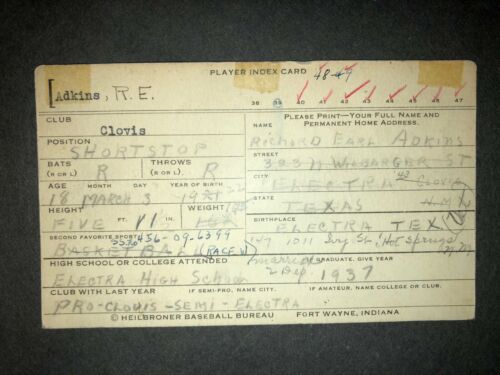 PLAYER INDEX CARD 48-49
Adkins, R.E.
38 39 40 41 42 43 44 45 46 47
CLUB
Clovis
PLEASE PRINT—YOUR FULL NAME AND
PERMANENT HOME ADDRESS.
POSITION
SHORTSTOP
NAME
RICHARD EARL ADKINS
BATS
(R OR L) R
THROWS
(R OR L) R
STREET
323 N WILBARGER ST
AGE MONTH DAY YEAR OF BIRTH
18 MARCH 3 22
CITY
ELECTRA 42 Clovis
STATE
TEXAS N.M.
HEIGHT WEIGHT
FIVE FT. 11 IN.
BIRTHPLACE
ELECTRA TEX
SECOND FAVORITE SPORT 456-09-6399
BASKETBALL (RACE W)
147 1011 Ivy St. Hot Springs
N.M.
HIGH SCHOOL OR COLLEGE ATTENDED
ELECTRA HIGH SCHOOL
Married
2 Dep
GRADUATE, GIVE YEAR
1937
CLUB WITH LAST YEAR IF SEMI-PRO, NAME CITY. IF AMATEUR, NAME COLLEGE OR CLUB.
PRO-CLOVIS-SEMI-ELECTRA
© HEILBRONER BASEBALL BUREAU FORT WAYNE, INDIANA